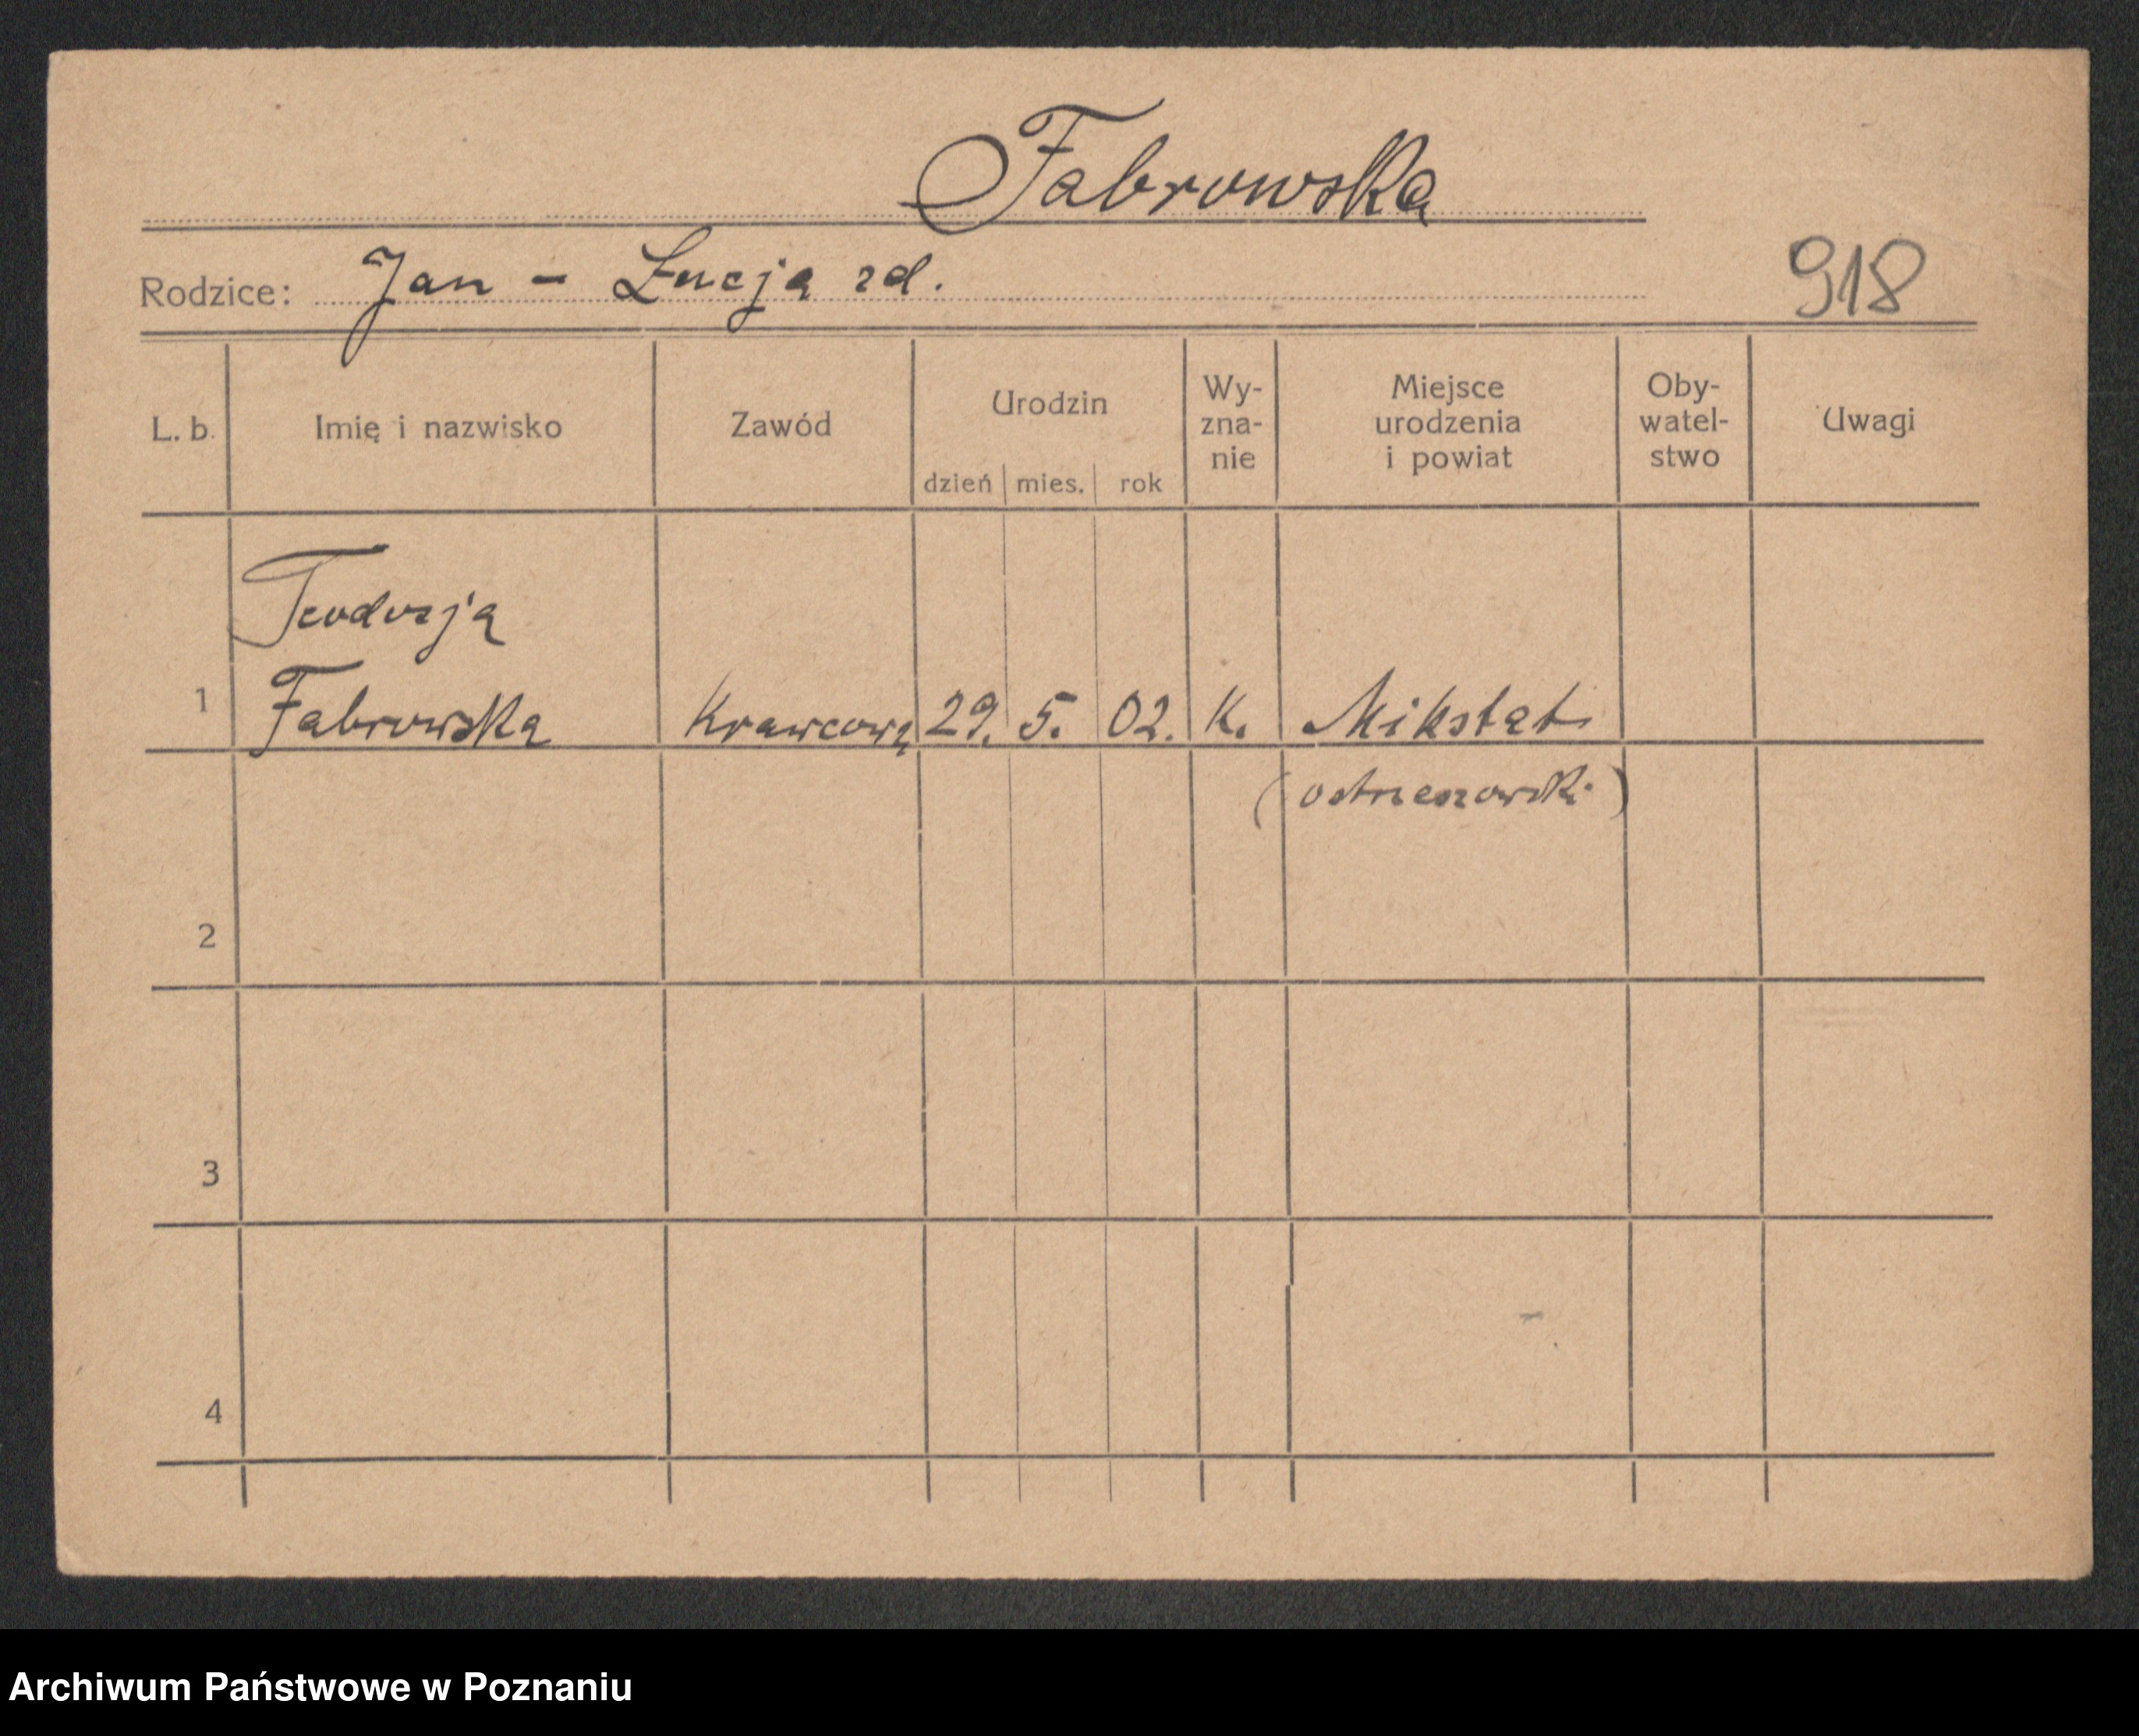 Fabrowska
Rodzice: Jan - Łucja zd.
918
L. b. Imię i nazwisko Zawód Urodzin dzień mies. rok Wy-zna-nie Miejsce urodzenia i powiat Oby-watel-stwo Uwagi
Teodozja
1 Fabrowska Krawcowa 29. 5. 02. K. Mikstat
(ostrzeszowski)
2
3
4
Archiwum Państwowe w Poznaniu